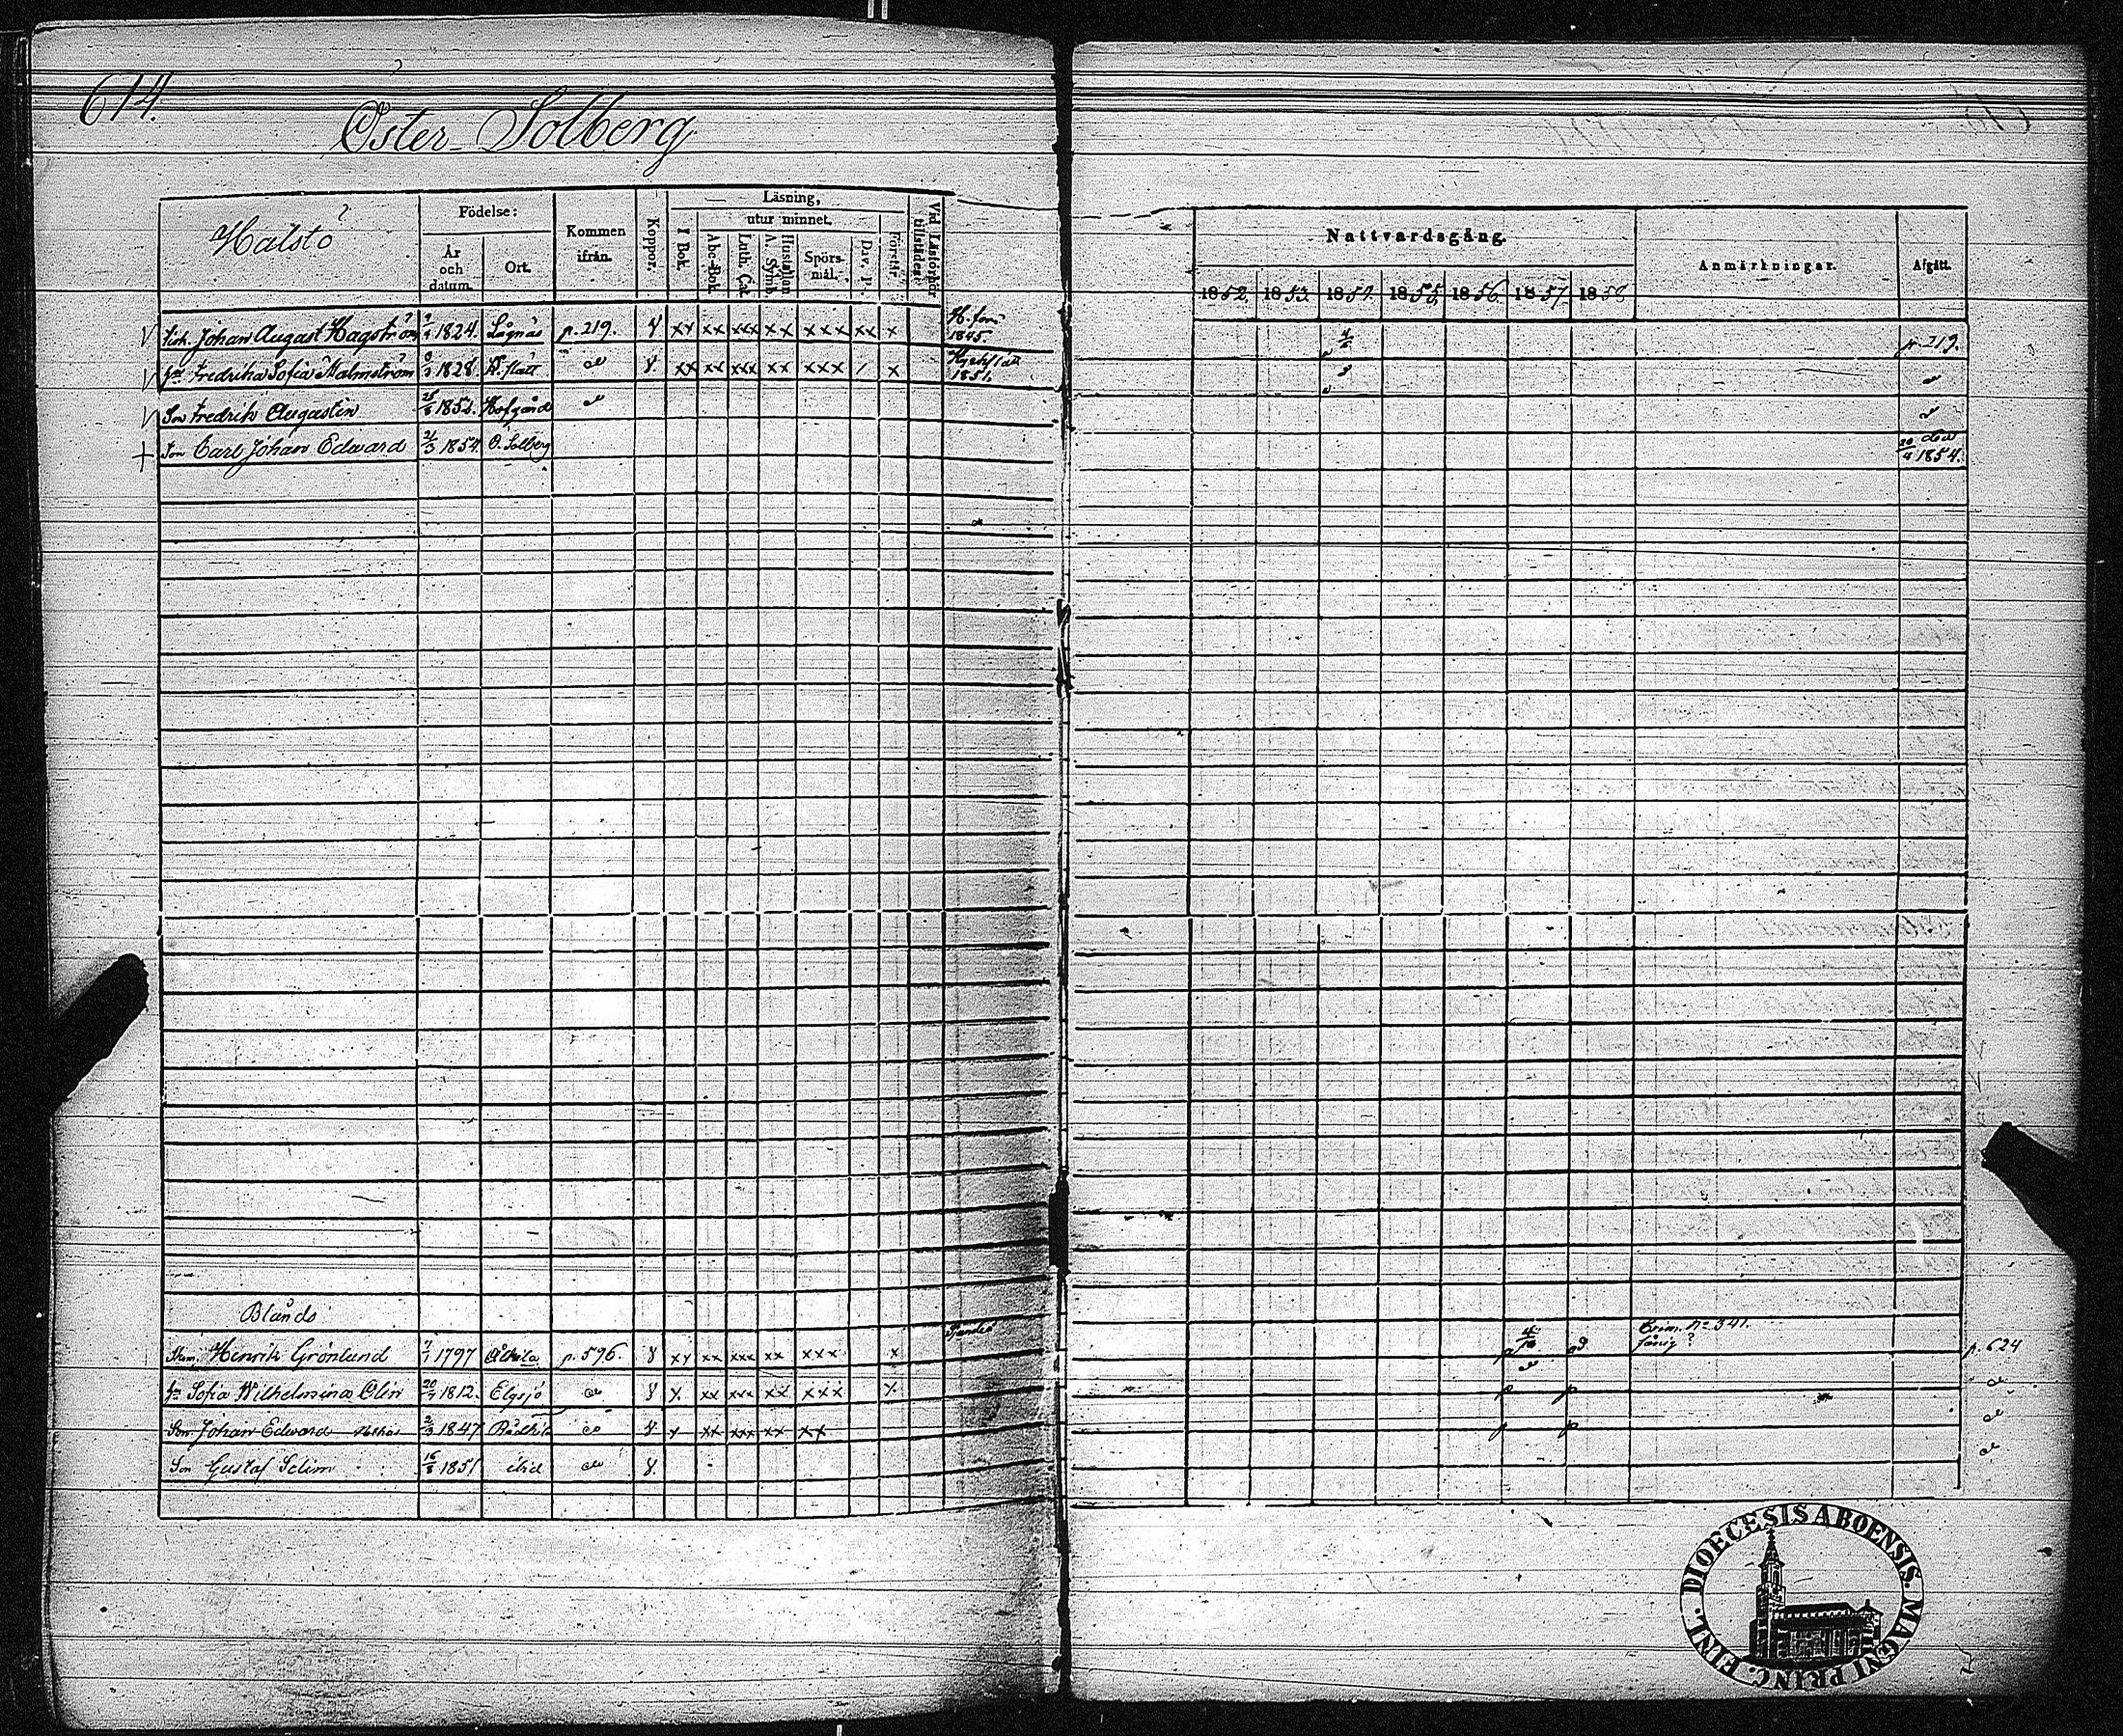 614.
Öster Solberg
Halstö
Födelse:
År och datum.
Ort.
Kommen ifrån.
Koppor.
Läsning,
I Bok.
utur minnet.
Abc-Bok.
Luth. Cat.
Hustaflan A. Symb.
Spörsmål.
Dav. P.
Förstår
Vid Läsförhör tillstädes
Nattvardsgång.
1852. 1853. 1854. 1855. 1856. 1857. 1858
Anmärkningar.
Afgått.
Johan August Hagström 1824. Lågnäs p. 219. xx xx xxx xx xxx xx x H:fors 1845. p. 219.
Fredrika Sofia Malmström 1828. xx xx xxx xx xxx / x 1851.
Son Fredrik Augustin 1852. Hofgård
Son Carl Johan Edward 21/3 1854. Ö. Solberg död 1854.
Blands
Henrik Grönlund 1797 p. 596. xx xx xxx xx xxx x No 341. p. 624
Sofia Wilhelmina Olin 1812. Elgsjö x xx xxx xx xxx x
Son Johan Edward 1847 x xx xxx xx xx
Son Gustaf Selim 16/8 1851 ibid
DIOECESIS ABOENSIS. MAGNI PRINC. FINL.